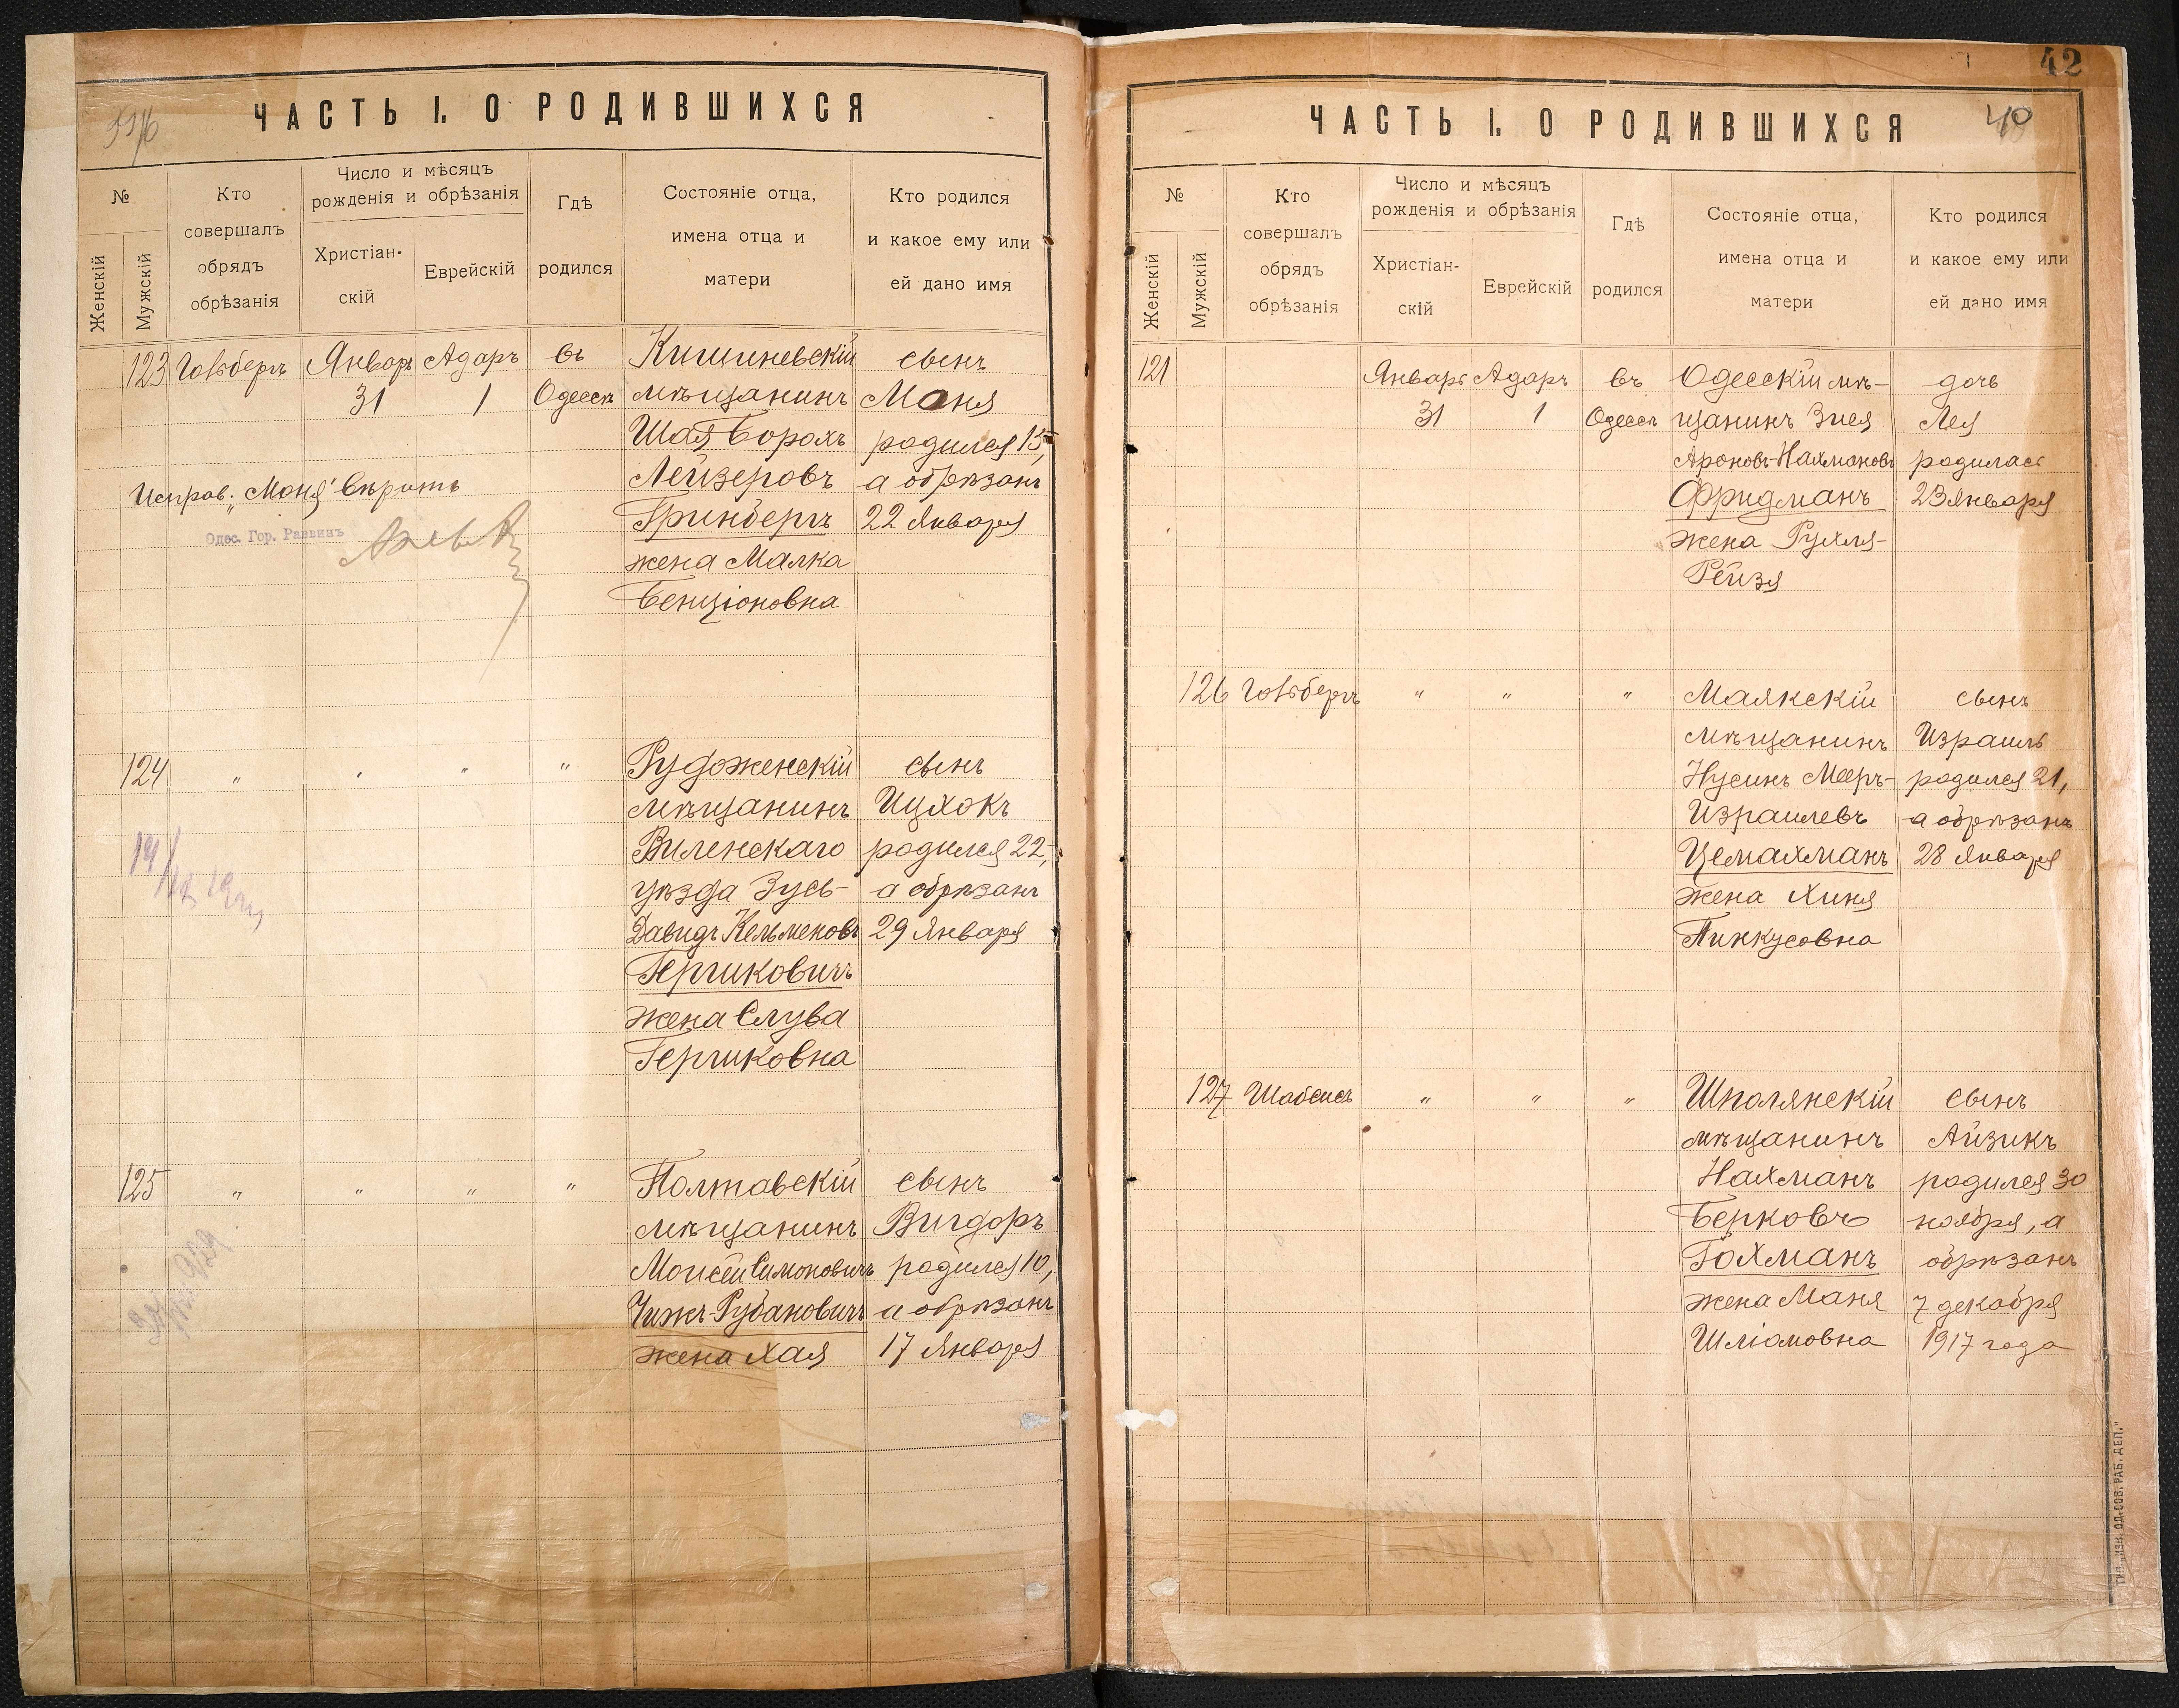 ЧАСТЬ I. О РОДИВШИХСЯ
№
Женскій
Мужскій
Кто
совершалъ
обрядъ
обрѣзанія
Число и мѣсяцъ
рожденія и обрѣзанія
Христіан-
скій
Еврейскій
Гдѣ
родился
Состояніе отца,
имена отца и
матери
Кто родился
и какое ему или
ей дано имя
123
Январь
31
Адаръ
1
въ
Одессѣ
Кишиневскій
мѣщанинъ
Шая Борохъ
Лейзеровъ
Гринбергъ
жена Малка
Бенціоновна
сынъ
Моня
родился 15,
а обрѣзанъ
22 Января
Исправ. „Моня" вѣрить
Одес. Гор. Раввинъ
124
"
"
"
"
мѣщанинъ
Виленскаго
уѣзда Зусь-
Давидъ Кельменовъ
Гершковичъ
жена Слува
Гершковна
сынъ
Ицхокъ
родился 22,
а обрѣзанъ
29 Января
125
"
"
"
"
Полтавскій
мѣщанинъ
Моисей Симоновичъ
Чижъ-Рубановичъ
жена Хая
сынъ
Вигдоръ
родился 10,
а обрѣзанъ
17 Января
42
40
ЧАСТЬ I. О РОДИВШИХСЯ
№
Женскій
Мужскій
Кто
совершалъ
обрядъ
обрѣзанія
Число и мѣсяцъ
рожденія и обрѣзанія
Христіан-
скій
Еврейскій
Гдѣ
родился
Состояніе отца,
имена отца и
матери
Кто родился
и какое ему или
ей дано имя
121
Январь
31
Адаръ
1
въ
Одессѣ
Одесскій мѣ-
щанинъ Зися
Ароновъ-Нахмановъ
Фридманъ
жена Рухля-
Рейзя
дочь
Лея
родилась
23 Января
126
"
"
"
Маякскій
мѣщанинъ
Нусинъ Мееръ-
Израилевъ
Цемахманъ
жена Хиня
Пинкусовна
сынъ
Израиль
родился 21,
а обрѣзанъ
28 Января
127
Шабсисъ
"
"
"
Шполянскій
мѣщанинъ
Нахманъ
Берковъ
Гохманъ
жена Маня
Шліомовна
сынъ
Айзикъ
родился 30
ноября, а
обрѣзанъ
7 декабря
1917 года
ТИП. „ИЗВ. ОД. СОВ. РАБ. ДЕП."